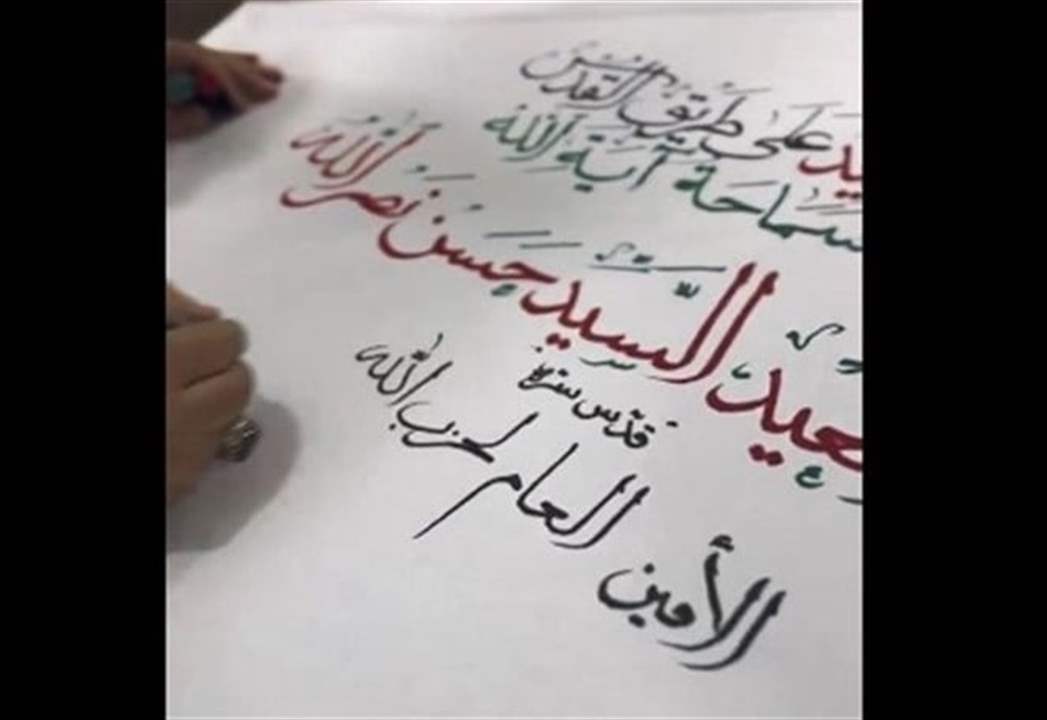 عَلى طَريق القُدس
سَماحَة آية الله
السَّيِّد حَسَن نصر الله
قدّس سرّه
الأمين العام لحزب الله